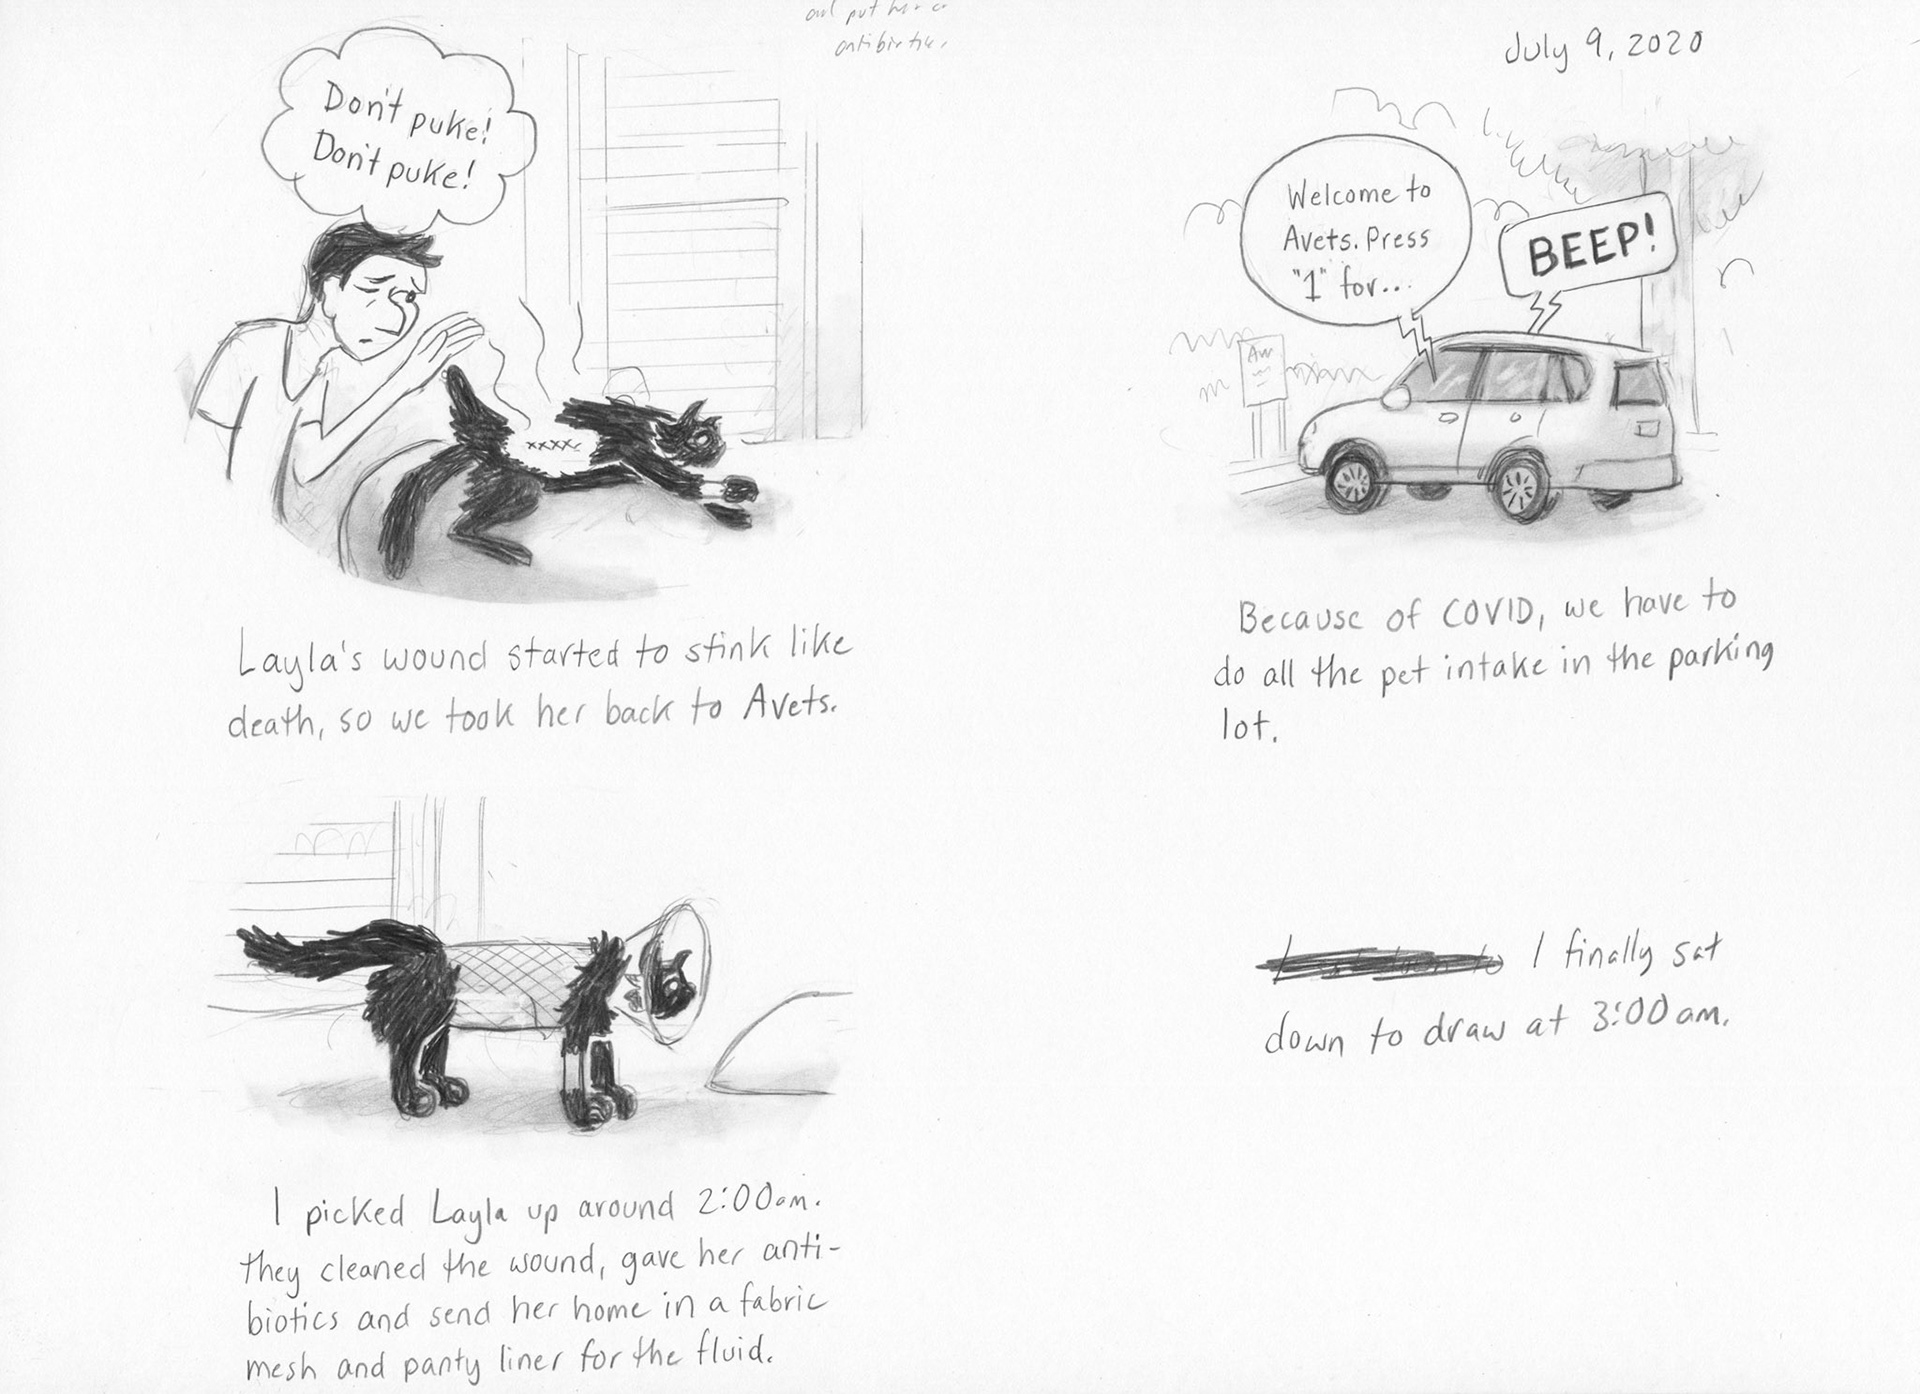 and put her o
antibiotics
July 9, 2020
Don't puke!
Don't puke!
Layla's wound started to stink like
death, so we took her back to Avets.
Welcome to
Avets. Press
"1" for...
BEEP!
Because of COVID, we have to
do all the pet intake in the parking
lot.
I picked Layla up around 2:00am.
they cleaned the wound, gave her anti-
biotics and send her home in a fabric
mesh and panty liner for the fluid.
I finally sat
down to draw at 3:00am.